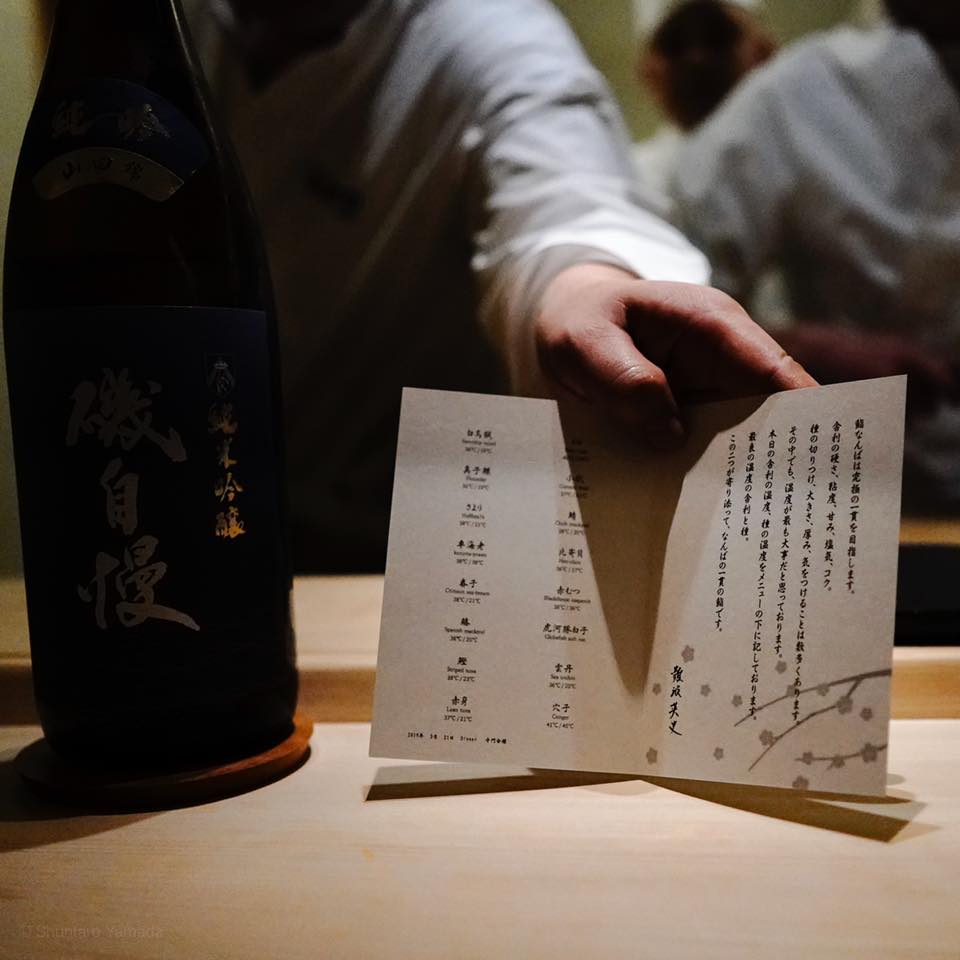 純 吟
山田錦
磯自慢
純米吟醸
白烏賊
38℃/19℃
真子鰈
Flounder
さより
Halfbeak
38℃/21℃
車海老
kuruma prawn
38℃/38℃
春子
Crimson sea-bream
38℃/21℃
鰆
Spanish mackerel
38℃/20℃
鰹
Striped tuna
38℃/23℃
赤身
Lean tuna
37℃/21℃
2019年 3月 21日 Dinner
小肌
鯖
Chub mackerel
北寄貝
Hen-clam
36℃/17℃
赤むつ
Blackthroat seaperch
38℃/36℃
虎河豚白子
Globefish soft roe
雲丹
Sea urchin
穴子
Conger
41℃/40℃
鮨なんばは究極の一貫を目指します。
舎利の硬さ、粘度、甘み、塩気、コク。
種の切りつけ、大きさ、厚み、気をつけることは数多くあります。
その中でも、温度が最も大事だと思っております。
本日の舎利の温度、種の温度をメニューの下に記しております。
最良の温度の舎利と種。
この二つが寄り添って、なんばの一貫の鮨です。
難波英史
© Shuntaro Yamada